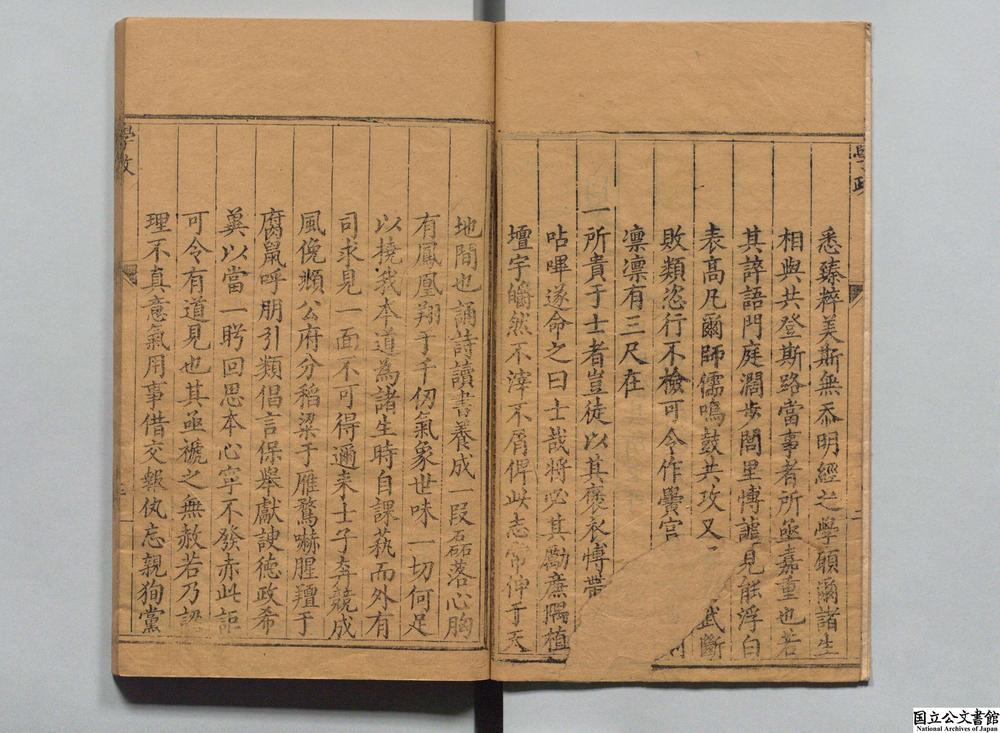 學政
悉臻粹美斯無忝明經之學願爾諸生
相與共登斯路當事者所亟嘉重也若
其誶語門庭濶步閭里愽謔見能浮白
表高凡爾師儒鳴鼓共攻又 武斷
敗類恣行不檢可令作黌宮
凛凛有三尺在
一所貴于士者豈徒以其褒衣愽帶
呫嗶遂命之曰士哉將必其勵廉隅植
壇宇皭然不滓不屑俾此志常伸于天
地間也誦詩讀書養成一段磊落心胸
有鳳凰翔于千仞氣象世味一切何足
以撓我本道為諸生時自課萟而外有
司求見一面不可得邇来士子奔競成
風俛頫公府分稻粱于雁鶩嚇腥羶于
腐鼠呼朋引類倡言保舉獻諛德政希
兾以當一盻回思本心寧不發赤此詎
可令有道見也其亟褫之無赦若乃認
理不真意氣用事借交報仇忘親狥黨
學政
国立公文書館
National Archives of Japan